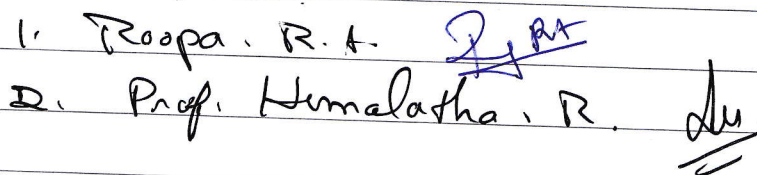 1. Roopa. R. A.
2. Prof. Hemalatha. R.